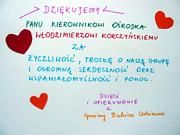 DZIĘKUJEMY
PANU KIEROWNIKOWI OŚRODKA
WŁODZIMIERZOWI KORCZYŃSKIEMU
ZA
ŻYCZLIWOŚĆ, TROSKĘ O NASZĄ GRUPĘ
I OGROMNĄ SERDECZNOŚĆ ORAZ
WSPANIAŁOMYŚLNOŚĆ I POMOC.
DZIECI
I OPIEKUNOWIE
Z
Gminy